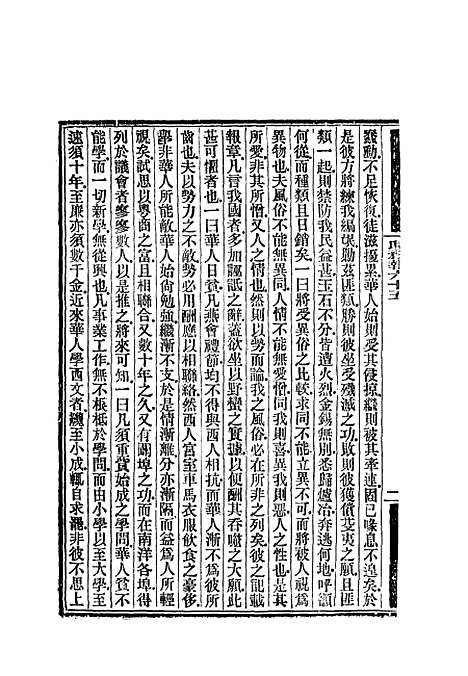 蠢動不足恢復徒滋擾累華人始則受其侵掠繼則被其牽連固已喙息不遑矣於
是彼方將練我編氓勦茲匪類勝則彼坐受殲滅之功敗則彼獲償芟夷之願且匪
類一起則禁防我民益甚玉石不分皆遭火烈金錫無別悉歸爐冶奔逃何地呼籲
何從而種類且日錯矣一曰將受異俗之比較求同不能立異不可而將被人視為
異物也夫風俗不能無異同人情不能無愛憎同我則喜異我則惡人之性也是其
所愛非其所憎又人之情也然則以勢而論我之風俗必在所非之列矣彼之記載
報章凡言我國者多加譏詆之辭蓋欲坐以野蠻之實據以便酬其吞噬之大願此
甚可懼者也一曰華人日貧凡燕會禮節均不得與西人相抗而華人漸不為彼所
齒也夫軟勢力之勢必用酬應以相聯絡然而西人宮室車馬衣服飲食之豪侈
舉非華人所能敵華人始尚勉強繼漸不支於是情漸離分亦漸隔而益為人所輕
視矣試思以粵商之富且相聯合又數十年之久又有闢埠之功而在南洋各埠得
列於議會者寥寥數人以是推之將來可知一曰凡須重貲始成之學問華人貧不
能學而一切新學無從興也凡事業工作無不根柢於學問而由小學以至大學至
速須十年至廉亦須數千金近來華人學西文者纔至小成輒自求罷非彼不思上